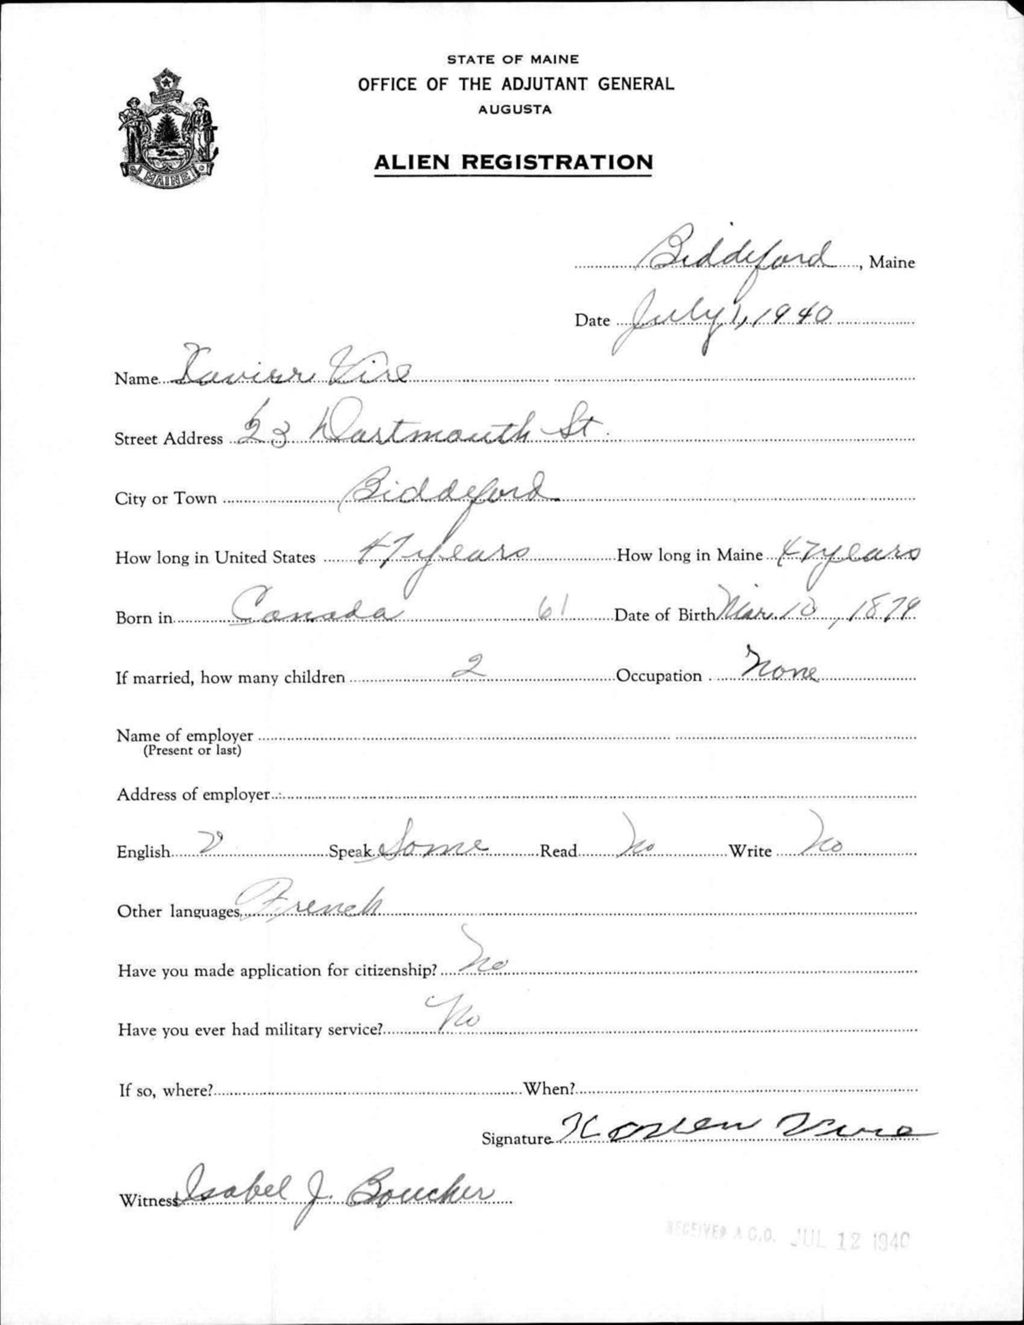 STATE OF MAINE
OFFICE OF THE ADJUTANT GENERAL
AUGUSTA
ALIEN REGISTRATION
MAINE
Biddeford, Maine
Date July 1, 1940
Name Xavier Vire
Street Address 23 Dartmouth St.
City or Town Biddeford
How long in United States 47 years How long in Maine 47 years
Born in Canada 61 Date of Birth Mar. 10, 1879
If married, how many children 2 Occupation None
Name of employer
(Present or last)
Address of employer
English Speak Some Read No Write No
Other languages French
Have you made application for citizenship? No
Have you ever had military service? No
If so, where? When?
Signature Vire
Witness Isabel J. Boucher
RECEIVED A.G.O. JUL 12 1940